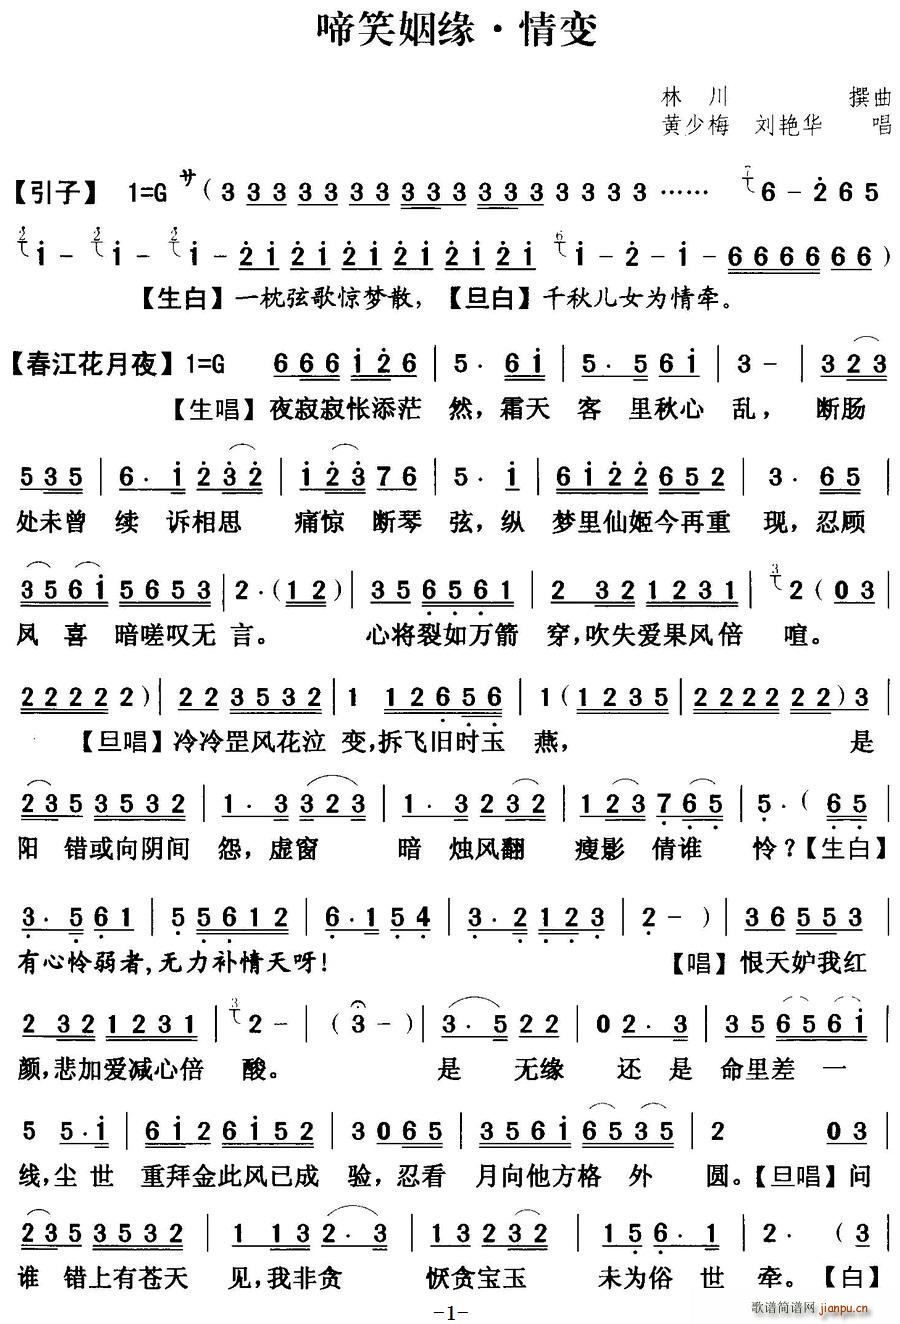 啼笑姻缘·情变
林川 撰曲
黄少梅 刘艳华 唱
【引子】 1=G サ ( 3 3 3 3 3 3 3 3 3 3 3 3 3 3 3 3 3 …… 6 - 2 6 5
1 - 1 - 1 - 2 1 2 1 2 1 2 1 2 1 2 1 1 - 2 - 1 - 6 6 6 6 6 6 )
【生白】一枕弦歌惊梦散,【旦白】千秋儿女为情牵。
【春江花月夜】1=G 6 6 6 1 2 6 | 5 · 6 1 | 5 · 5 6 1 | 3 - | 3 2 3
【生唱】夜寂寂怅添茫 然,霜天 客 里秋心 乱,断肠
5 3 5 | 6 · 1 2 3 2 | 1 2 3 7 6 | 5 · 1 | 6 1 2 2 6 5 2 | 3 · 6 5 |
处未曾 续 诉相思 痛惊 断琴 弦,纵 梦里仙姬今再重 现,忍顾
3 5 6 1 5 6 5 3 | 2 · ( 1 2 ) | 3 5 6 5 6 1 | 2 3 2 1 2 3 1 | 2 ( 0 3 |
凤 喜 暗嗟叹无 言。 心将裂如万箭 穿,吹失爱果风倍 喧。
2 2 2 2 2 ) | 2 2 3 5 3 2 | 1 1 2 6 5 6 | 1 ( 1 2 3 5 | 2 2 2 2 2 2 ) 3 |
【旦唱】冷冷罡风花泣 变,拆飞旧时玉 燕, 是
2 3 5 3 5 3 2 | 1 · 3 3 2 3 | 1 · 3 2 3 2 | 1 2 3 7 6 5 | 5 · ( 6 5 |
阳 错或向阴间 怨,虚窗 暗 烛风翻 瘦影 倩谁 怜?【生白】
3 · 5 6 1 | 5 5 6 1 2 | 6 · 1 5 4 | 3 · 2 1 2 3 | 2 - ) | 3 6 5 5 3
有心怜弱者,无力补情天呀! 【唱】恨天妒我红
2 3 2 1 2 3 1 | 2 - | ( 3 - ) | 3 · 5 2 2 | 0 2 · 3 | 3 5 6 5 6 1 |
颜,悲加爱减心倍 酸。 是 无缘 还 是 命里差 一
5 5 · 1 | 6 1 2 6 1 5 2 | 3 0 6 5 | 3 5 6 1 6 5 3 5 | 2 0 3 |
线,尘 世 重拜金此风已成 验,忍看 月向他方格 外 圆。【旦唱】问
2 3 5 3 5 3 2 | 1 1 3 2 · 3 | 1 3 2 3 2 | 1 5 6 · 1 | 2 · ( 3 |
谁 错上有苍天 见,我非贪 恹贪宝玉 未为俗 世 牵。【白】
-1-
歌谱简谱网
jianpu.cn